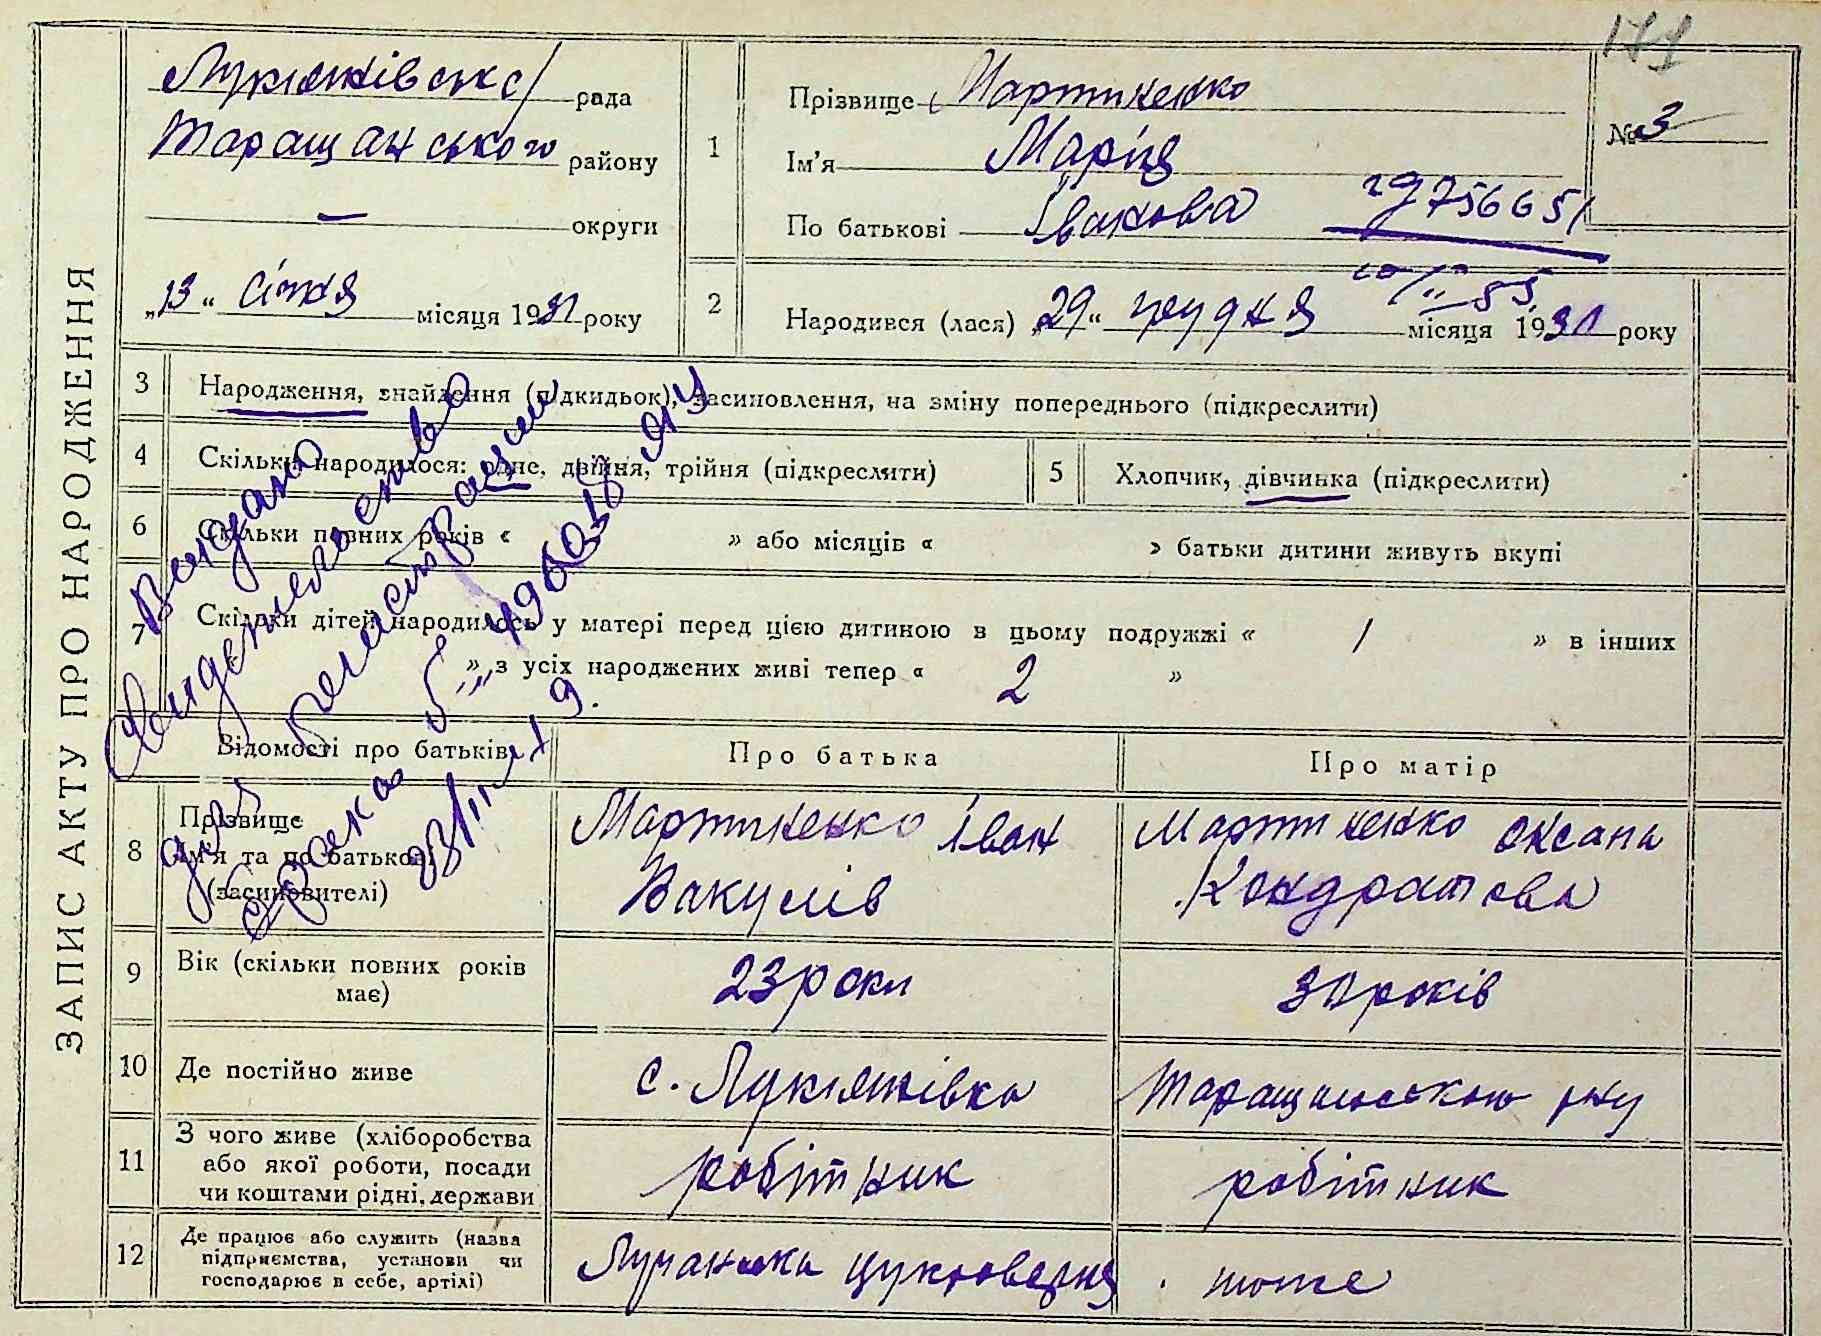 171
ЗАПИС АКТУ ПРО НАРОДЖЕННЯ
Лукянівськ с/ рада
Таращанського районy
— округи
„13“ січня місяця 1931 року
1
Прізвище Мартиненко
Ім'я Марія
По батькові Іванова
№ 3
756651
2
Народився (лася) „29“ грудня місяця 1930 року
3 Народження, знайдення (підкидьок), засиновлення, на зміну попереднього (підкреслити)
4 Скільки народилося: одне, двійня, трійня (підкреслити)
5 Хлопчик, дівчинка (підкреслити)
6 Скільки повних років « » або місяців « » батьки дитини живуть вкупі
7 Скільки дітей народилось у матері перед цією дитиною в цьому подружжі « 1 » в інших
« » з усіх народжених живі тепер « 2 »
Видано
свидетельство
для регистрации
брака
Відомості про батьків
Про батька
Про матір
8 Прізвище
Ім'я та по батькові
(засиновителі)
Мартиненко Іван
Вакулів
Мартиненко Оксана
Кондратова
9 Вік (скільки повних років
має)
23 роки
30 років
10 Де постійно живе
с. Лукянівка
Таращанського р-ну
11 З чого живе (хліборобства
або якої роботи, посади
чи коштами рідні, держави
робітник
робітник
12 Де працює або служить (назва
підприємства, установи чи
господарює в себе, артілі)
цукроварня
тоже